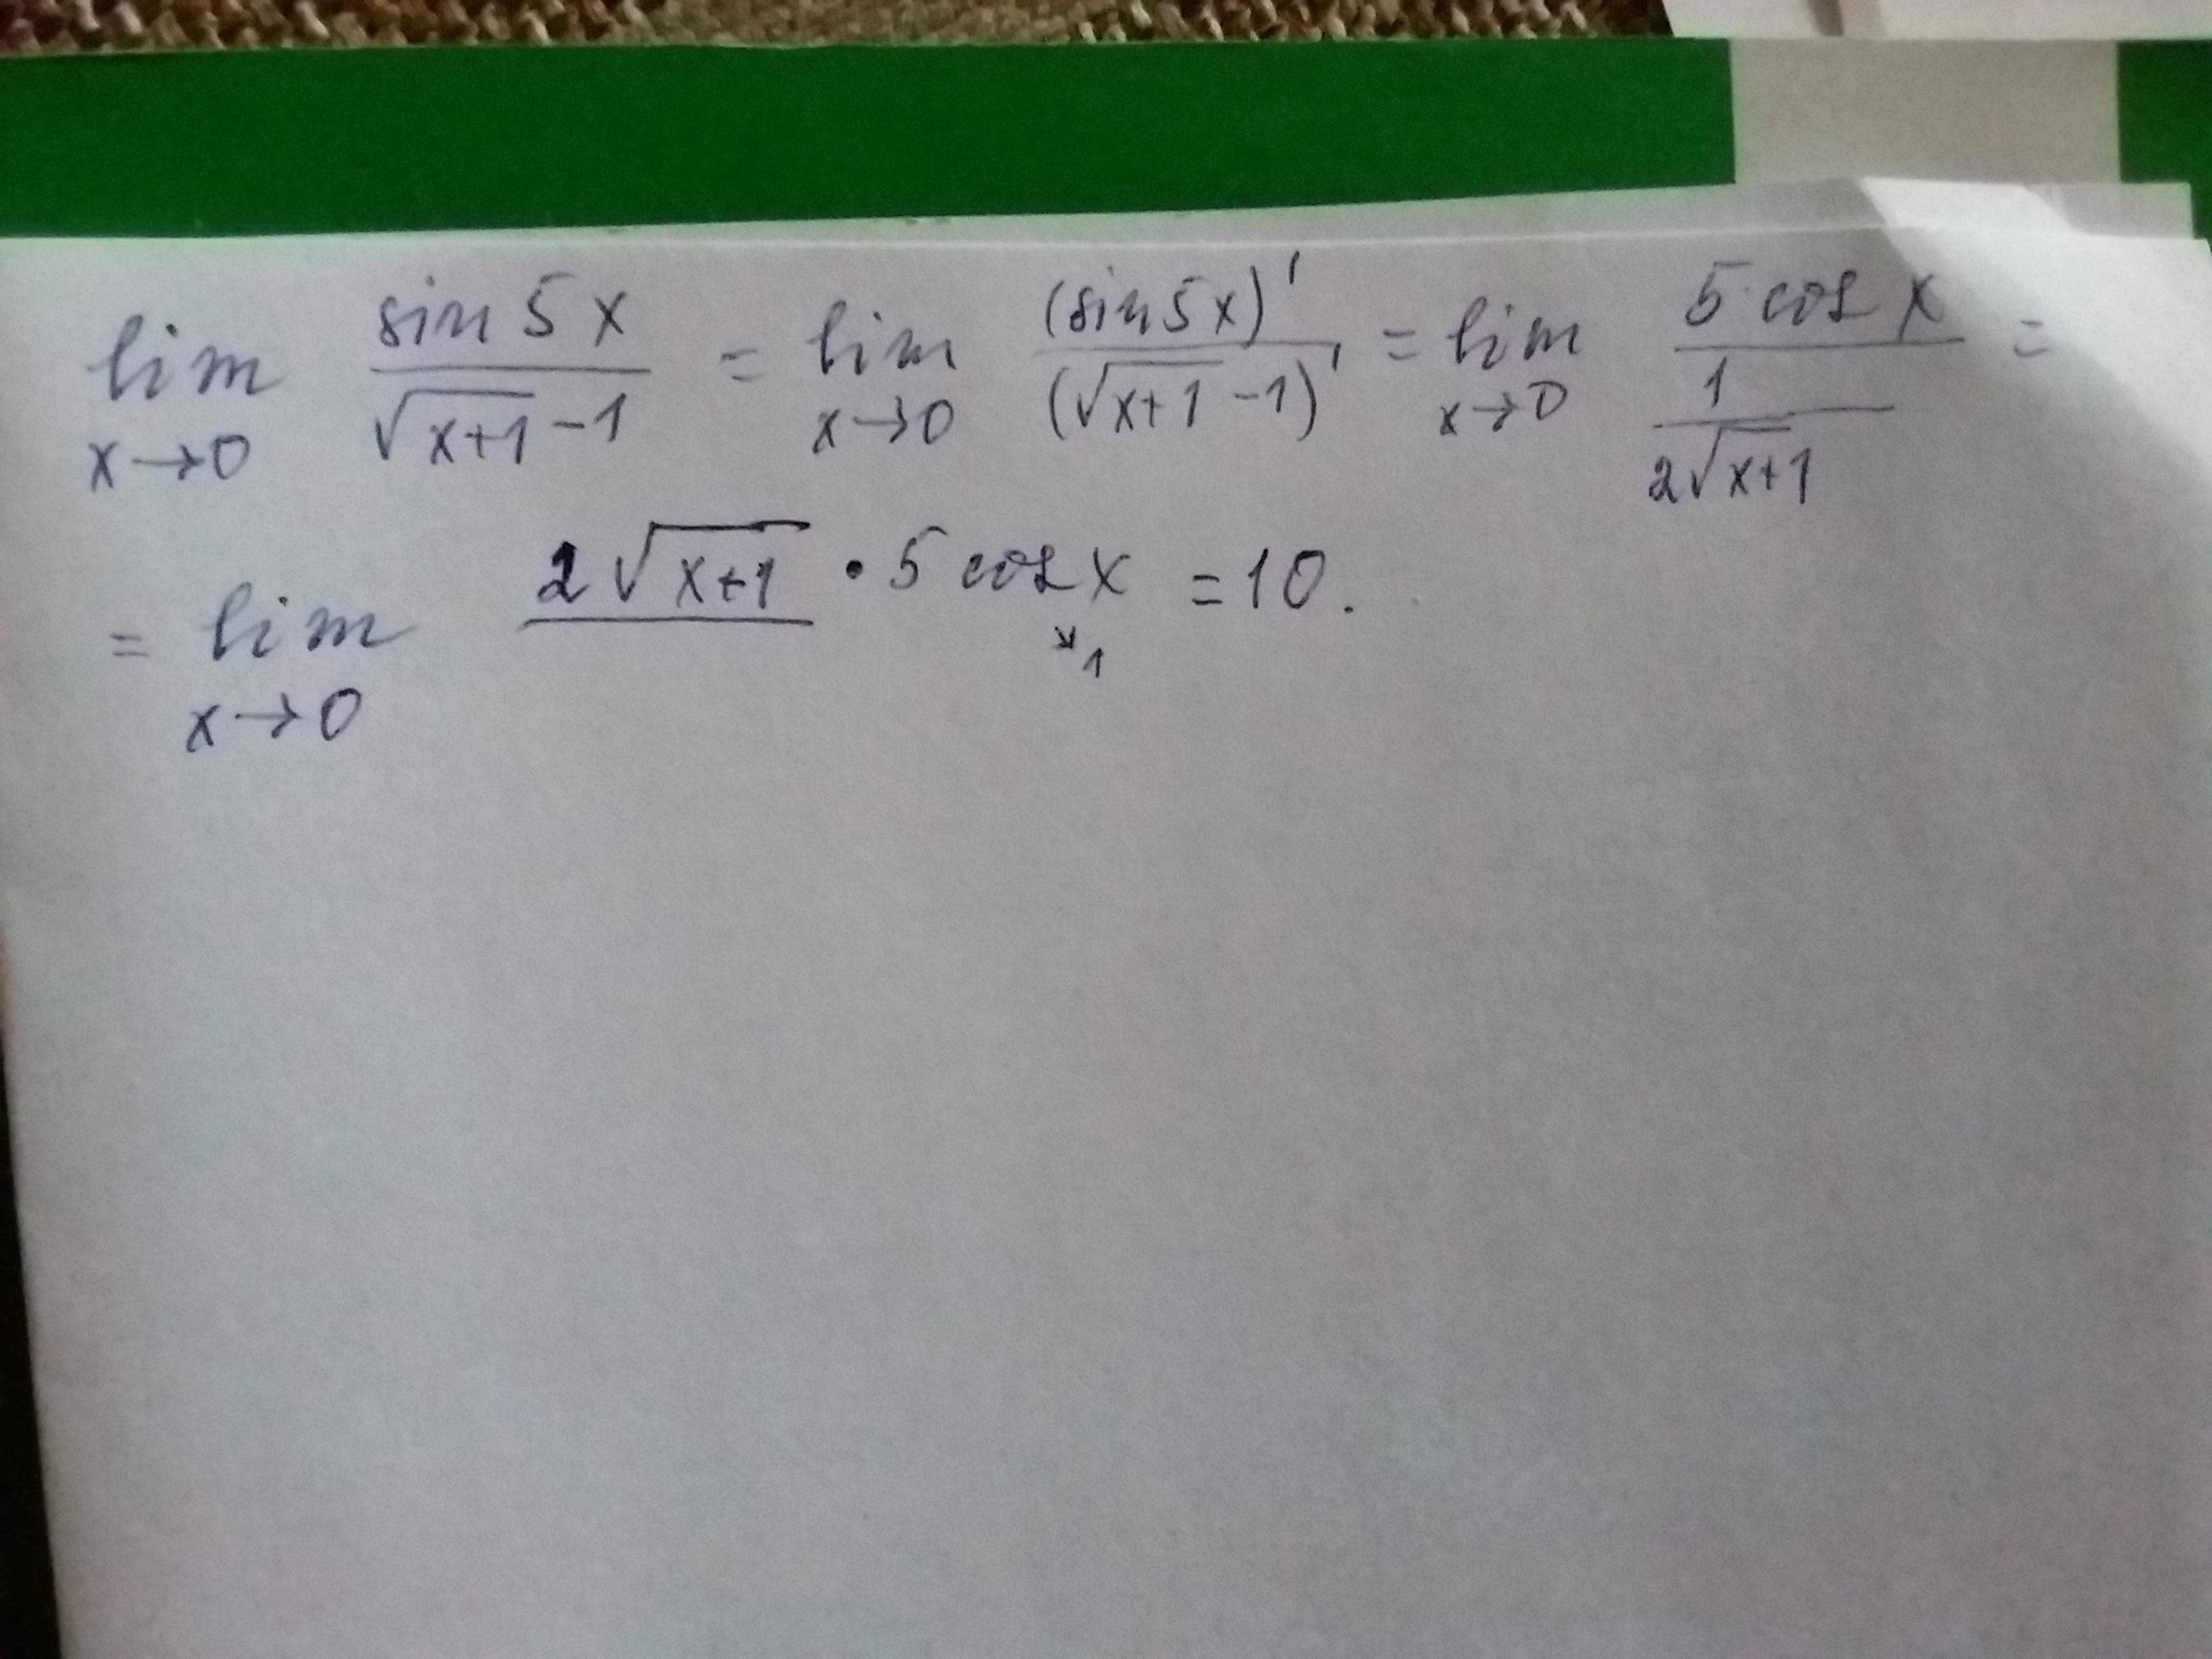 lim x→0 sin 5x / (√(x+1) - 1) = lim x→0 (sin 5x)' / (√(x+1) - 1)' = lim x→0 5 cos x / (1 / (2√(x+1))) =
= lim x→0 2√(x+1) • 5 cos x = 10.
↘1